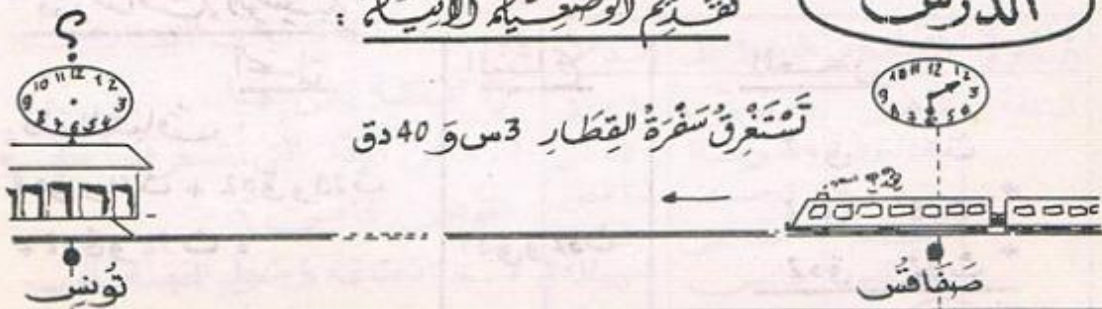 الدرس
تقديم الوضعية الآتية :
؟
تَسْتَغْرِقُ سَفْرَةُ القِطَارِ 3 س وَ 40 دق
تونس
صفاقس